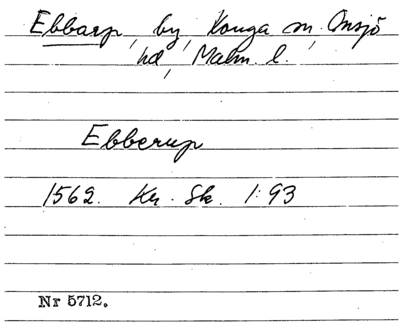 Ebbarp, by, Konga sn, Onsjö
hd, Malm. l.
Ebberup
1562. Kr. Sk. 1:93
Nr 5712.